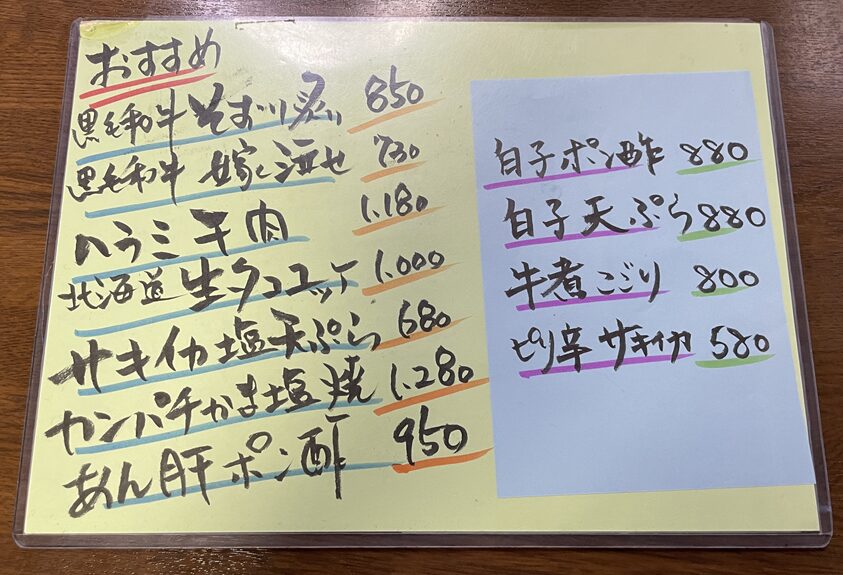 おすすめ
黒毛和牛 そずり炙り 850
黒毛和牛 730
ハラミ干肉 1.180
北海道 生タコユッケ 1.000
サキイカ塩天ぷら 680
カンパチかま塩焼 1.280
あん肝ポン酢 950
白子ポン酢 880
白子天ぷら 880
牛煮こごり 800
ピリ辛サキイカ 580